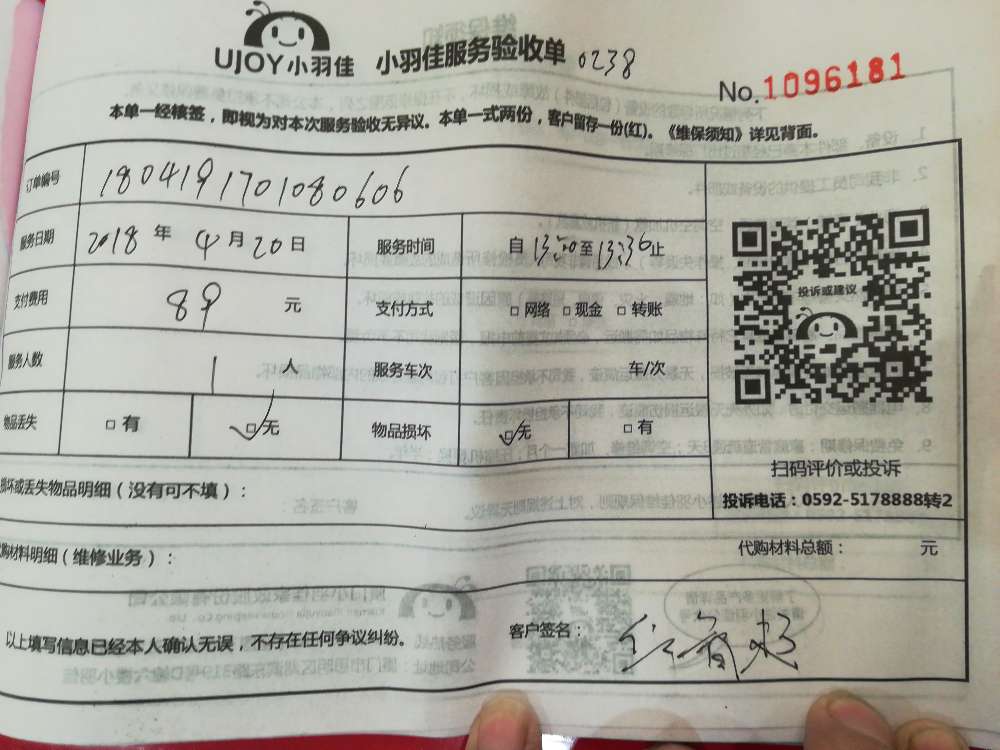 UJOY小羽佳 小羽佳服务验收单 0238
No. 1096181
本单一经核签，即视为对本次服务验收无异议。本单一式两份，客户留存一份(红)。《维保须知》详见背面。
订单编号 1804191701080606
服务日期 2018 年 4 月 20 日 服务时间 自 13:00 至 13:36 止
投诉或建议
支付费用 89 元 支付方式 □ 网络 □ 现金 □ 转账
服务人数 1 人 服务车次 车/次
物品丢失 □ 有 □ 无 物品损坏 □ 无 □ 有
扫码评价或投诉
损坏或丢失物品明细（没有可不填）：
投诉电话：0592-5178888转2
代购材料明细（维修业务）： 代购材料总额： 元
以上填写信息已经本人确认无误，不存在任何争议纠纷。 客户签名：